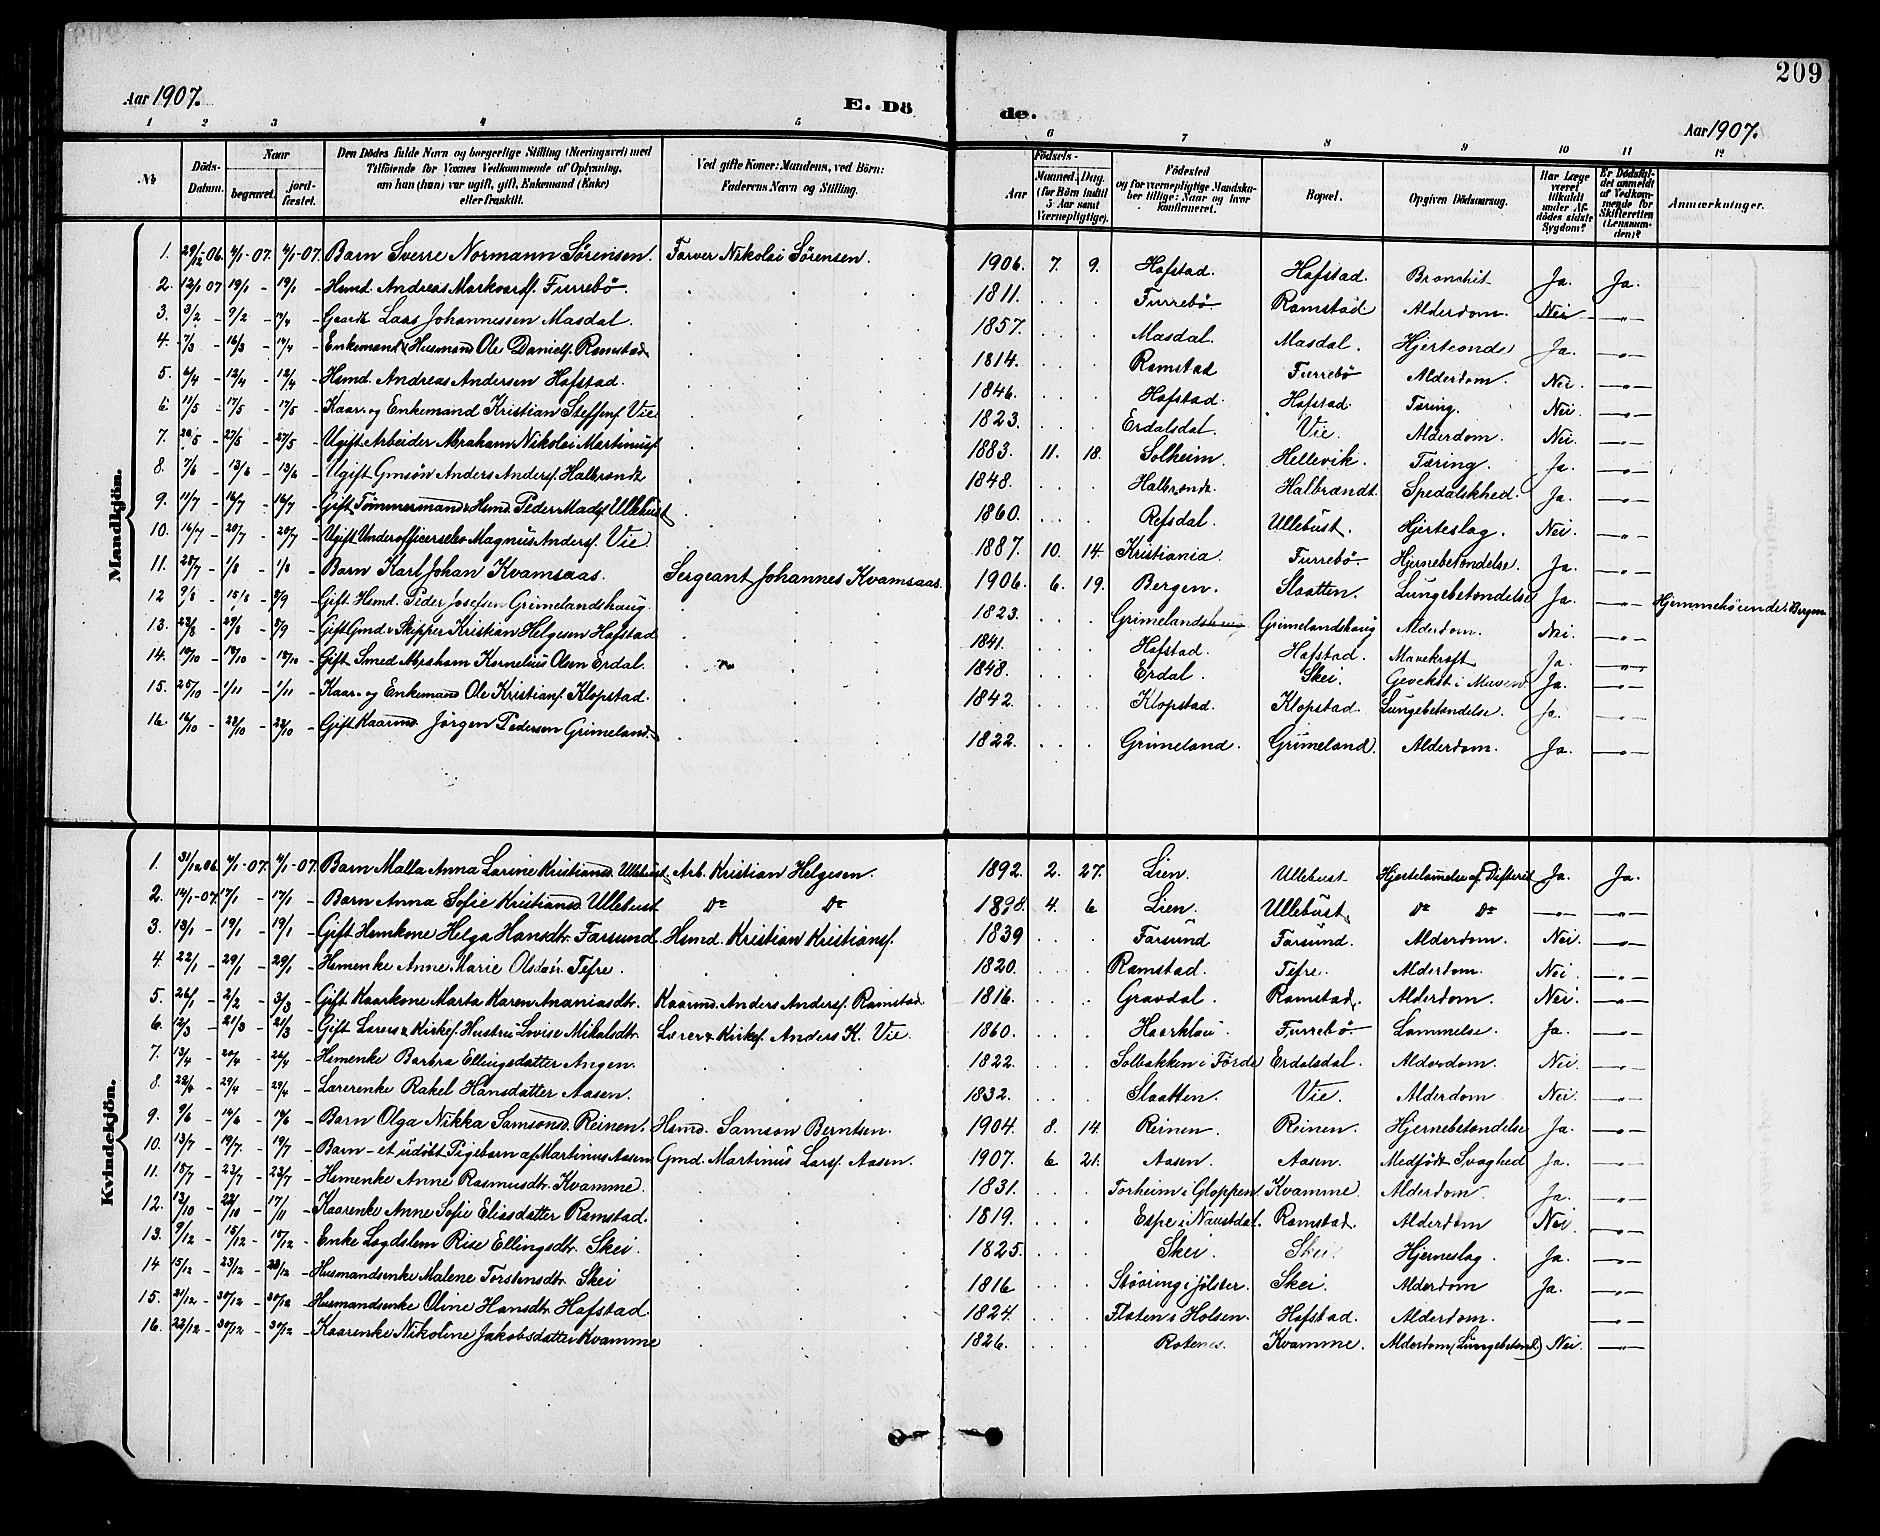 209
Aar 1907.
E. Dö
de.
Aar 1907.
1 2 3 4 5 6 7 8 9 10 11 12
№ Döds-Datum. Naar begravet. jord-fæstet. Den Dödes fulde Navn og borgerlige Stilling (Næringsvei) med Tilföiende for Voxnes Vedkommende af Oplysning, om han (hun) var ugift, gift, Enkemand (Enke) eller fraskilt. Ved gifte Koner: Mandens, ved Börn: Faderens Navn og Stilling. Födsels- Aar Maaned. Dag. (for Börn indtil 5 Aar samt Værnepligtige). Födested og for værnepligtige Mandska-ber tillige: Naar og hvor konfirmeret. Bopæl. Opgiven Dödsaarsag. Har Læge været tilkaldt under Af-dödes sidste Sygdom? Er Dödsfal-det anmeldt af Vedkom-mende for Skifteretten (Lensman-den)? Anmærkninger.
Mandkjön.
1. 29/12 06. 4/1-07. 4/1-07. Barn Sverre Normann Sørensen. Farver Nikolai Sørensen. 1906. 7. 9. Hafstad. Hafstad. Bronchit Ja. Ja.
2. 12/1 07 19/1 - 19/1 - Hsmd. Andreas Markvardsf. Furrebø. 1811. Furrebø Ramstad Alderdom. Nei -"-
3. 3/2 - 9/2 - 14/4 - Gaardb. Lars Johannessen Masdal. 1857. Masdal. Masdal. Hjerteonde Ja. -"-
4. 7/3 - 16/3 - 14/4 - Enkemand & Husmand Ole Danielsf. Ramstad 1814. Ramstad Furrebø Alderdom. Nei. -"-
5. 6/4 - 12/4 - 12/4 - Hsmd. Andreas Andersen Hafstad. 1846. Hafstad. Hafstad Tæring. Nei. -"-
6. 11/5 - 17/5 - 17/5 - Kaar- og Enkemand Kristian Steffensf. Vie 1823. Erdalsdal. Vie. Alderdom. Nei. -"-
7. 20/5 - 27/5 - 27/5 - Ugift Arbeider Abraham Nikolai Martinusf. 1883. 11. 18. Solheim. Hellevik. Tæring. Ja. -"-
8. 7/6 - 13/6 - 13/6 - Ugift Gmsøn Anders Andersf. Halbrendt 1848. Halbrendt. Halbrændt. Spedalskhed. Ja. -"-
9. 11/7 - 16/7 - 16/7 - Gift Tømmermand & Hsmd. Peder Madsf. Ullebust 1860. Refsdal. Ullebust. Hjerteslag. Nei. -"-
10. 14/7 - 20/7 - 20/7 - Ugift Underofficerselev Magnus Andersf. Vie. 1887. 10. 14. Kristiania. Furrebø. Hjernebetændelse. Ja. -"-
11. 28/7 - 1/8 - 1/8 - Barn Karl Johan Kvamsaas. Sergeant Johannes Kvamsaas. 1906. 6. 19. Bergen. Slaatten. Lungebetændelse Ja. -"- Hjemmehørende i Bergen
12 9/8 - 15/8 - 8/9 - Gift Hsmd. Peder Josefsen Grimelandshaug. 1823. Grimelandshaug Grimelandshaug Alderdom. Nei -"-
13. 23/8 - 29/8 - 8/9 - Gift Gmd & Skipper Kristian Helgesen Hafstad 1841. Hafstad. Hafstad. Mavekræft Ja. -"-
14. 10/10 - 18/10 - 18/10 - Gift Smed Abraham Kornelius Olsen Erdal. 1848. Erdal. Skei. Gevekst i Maven. Ja. -"-
15. 25/10 - 1/11 - 1/11 - Kaar- og Enkemand Ole Kristiansf. Klopstad. 1842. Klopstad. Klopstad. Lungebetændelse. Ja. -"-
16. 16/10 - 22/10 - 22/10 - Gift Kaarmd. Jørgen Pedersen Grimeland. 1822. Grimeland. Grimeland. Alderdom. Ja. -"-
Kvindekjön.
1. 31/12 06. 4/1-07. 4/1-07. Barn Malla Anna Larine Kristiansd. Ullebust. Arb. Kristian Helgesen. 1892. 2. 27. Lien. Ullebust Hjertelamelse af Difterit Ja. Ja.
2. 14/1-07. 17/1 - 17/1 - Barn Anna Sofie Kristiansd. Ullebust Do Do 1898. 4. 6 Lien. Ullebust. Do Do -"- -"-
3. 13/1 - 19/1 - 19/1 - Gift Hsmkone Helga Hansdtr. Farsund. Hsmd. Kristian Kristiansf. 1839 Farsund Farsund. Alderdom. Nei. -"-
4. 22/1 - 29/1 - 29/1 - Hsmenke Anne Marie Olsdatr. Tefre. 1820. Ramstad. Tefre. Alderdom. Nei -"-
5. 26/1 - 2/2 - 3/3 - Gift Kaarkone Marta Karen Ananiasdtr. Kaarmd. Anders Andersf. Ramstad. 1816. Gravdal. Ramstad. Alderdom. Nei -"-
6. 12/3 - 21/3 - 21/3 - Gift Lærer & Kirkes. Hustru Lovise Mikalsdtr. Lærer & Kirkes. Anders K. Vie. 1860. Haarklau Furrebø. Lammelse. Ja. -"-
7. 13/4 - 20/4 - 26/4 - Hsmenke Barbra Ellingsdatter Angen. 1822. Solbakken i Førde Erdalsdal. Alderdom Nei -"-
8. 22/4 - 29/4 - 29/4 - Lærerenke Rakel Hansdatter Aasen. 1832. Slaatten. Vie. Alderdom Nei. -"-
9. 9/6 - 14/6 - 14/6 - Barn Olga Nikka Samsonsd. Reinen. Hsmd. Samson Berntsen. 1904. 8. 14. Reinen. Reinen. Hjernebetændelse Ja. -"-
10. 13/7 - 19/7. - 19/7 - Barn - et udøbt Pigebarn af Martinus Aasen Gmd. Martinus Larsf. Aasen. 1907. 6 21. Aasen. Aasen. Medfødt Svaghed Ja. -"-
11. 15/7 - 23/7 - 23/7 - Hsmenke Anne Rasmusdtr. Kvamme. 1831. Torheim i Gloppen. Kvamme. Alderdom Ja. -"-
12. 13/10 - 22/10 - 17/11 - Kaarenke Anne Sofie Eliasdatter Ramstad. 1819. Espe i Naustdal. Ramstad. Alderdom Nei -"-
13. 9/12 - 15/12 - 15/12 - Enke Lægdslem Rise Ellingsdtr. Skei. 1825. Skei. Skei. Hjerneslag. Ja. -"-
14 15/12 - 23/12 - 23/12 - Husmandsenke Malene Torstensdtr. Skei 1816 Støvring i Jølster. Skei. Alderdom Ja. -"-
15. 21/12 - 30/12 - 30/12 - Husmandsenke Oline Hansdtr. Hafstad. 1824. Flaten i Holsen. Hafstad. Alderdom. -"-
16. 22/12 - 30/12 - 30/12 - Kaarenke Nikoline Jakobsdatter Kvamme 1826. Rotenes. Kvamme. Alderdom (Lungebetænd.) Nei. -"-